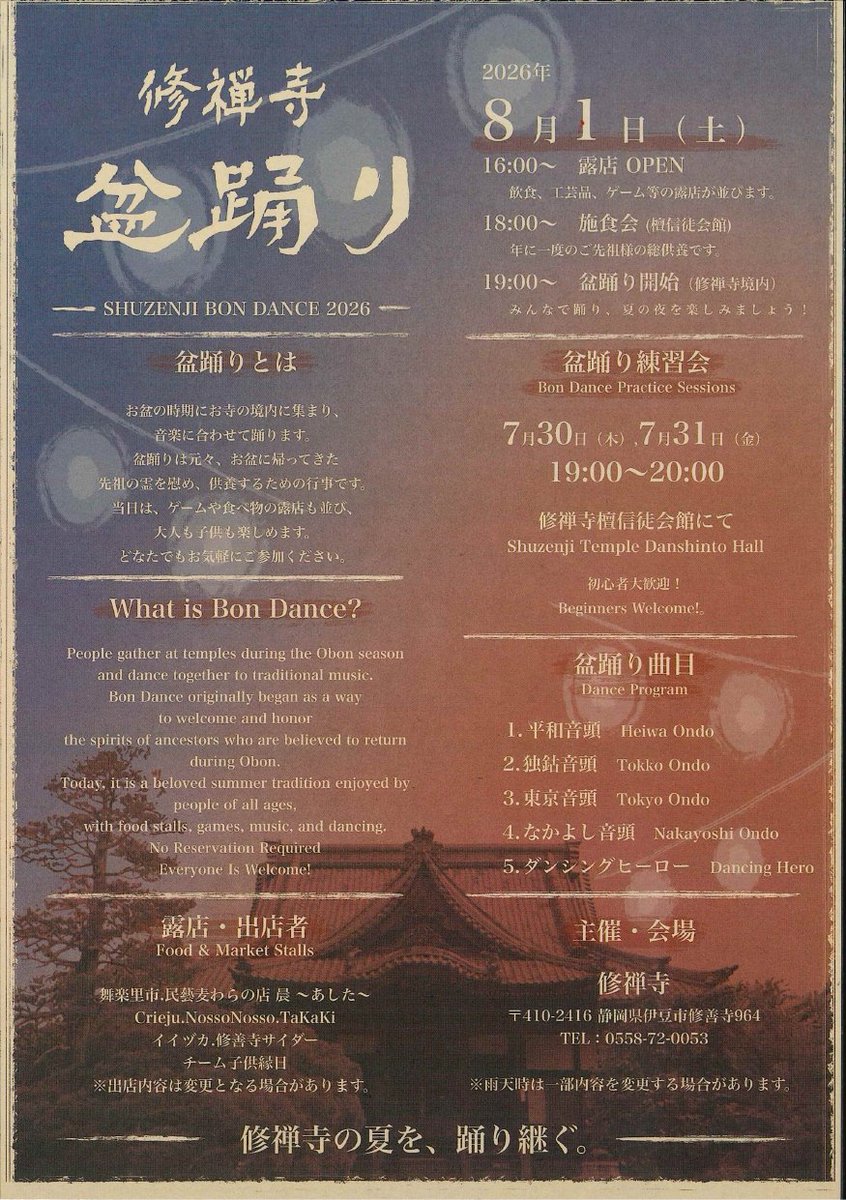 修禅寺
盆踊り
SHUZENJI BON DANCE 2026
2026年
8月1日（土）
16:00〜 露店 OPEN
飲食、工芸品、ゲーム等の露店が並びます。
18:00〜 施食会 (檀信徒会館)
年に一度のご先祖様の総供養です。
19:00〜 盆踊り開始（修禅寺境内）
みんなで踊り、夏の夜を楽しみましょう！
盆踊りとは
お盆の時期にお寺の境内に集まり、
音楽に合わせて踊ります。
盆踊りは元々、お盆に帰ってきた
先祖の霊を慰め、供養するための行事です。
当日は、ゲームや食べ物の露店も並び、
大人も子供も楽しめます。
どなたでもお気軽にご参加ください。
What is Bon Dance?
People gather at temples during the Obon season
and dance together to traditional music.
Bon Dance originally began as a way
to welcome and honor
the spirits of ancestors who are believed to return
during Obon.
Today, it is a beloved summer tradition enjoyed by
people of all ages,
with food stalls, games, music, and dancing.
No Reservation Required
Everyone Is Welcome!
露店・出店者
Food & Market Stalls
舞楽里市.民藝麦わらの店 晨 〜あした〜
Crieju.NossoNosso.TaKaKi
イイヅカ.修善寺サイダー
チーム子供縁日
※出店内容は変更となる場合があります。
盆踊り練習会
Bon Dance Practice Sessions
7月30日（木）,7月31日（金）
19:00〜20:00
修禅寺檀信徒会館にて
Shuzenji Temple Danshinto Hall
初心者大歓迎！
Beginners Welcome!。
盆踊り曲目
Dance Program
1. 平和音頭 Heiwa Ondo
2. 独鈷音頭 Tokko Ondo
3. 東京音頭 Tokyo Ondo
4. なかよし音頭 Nakayoshi Ondo
5. ダンシングヒーロー Dancing Hero
主催・会場
修禅寺
〒410-2416 静岡県伊豆市修善寺964
TEL：0558-72-0053
※雨天時は一部内容を変更する場合があります。
修禅寺の夏を、踊り継ぐ。